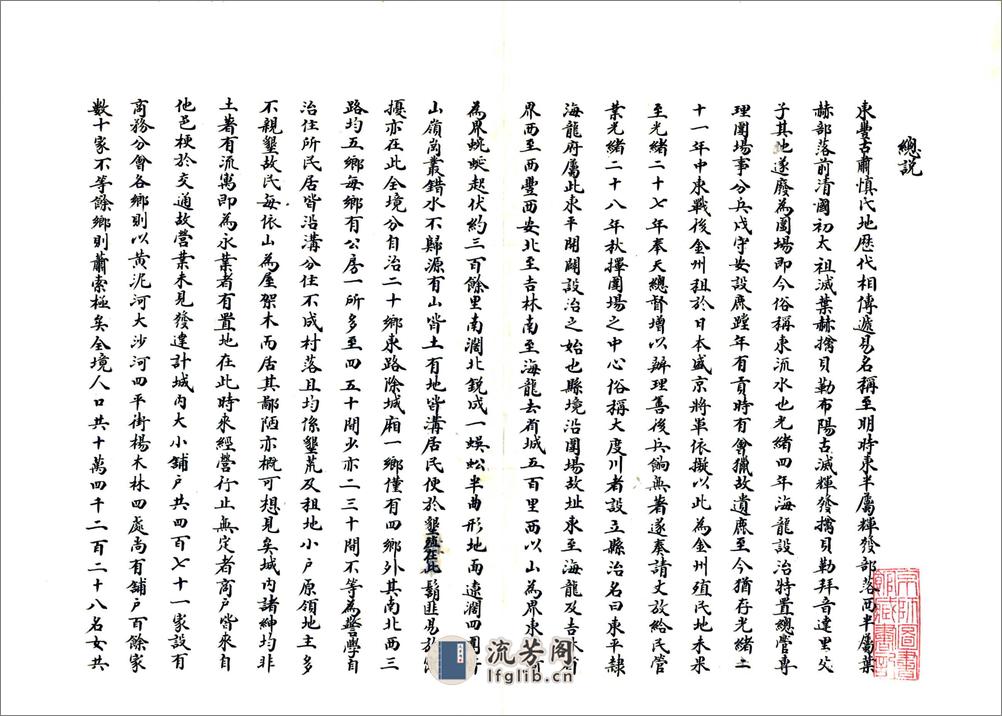 總說
東豐古肅慎氏地歷代相傳遞易名稱至明時東半屬輝發部落西半屬葉
赫部落前清國初太祖滅葉赫擒貝勒布陽古滅輝發擒貝勒拜音達里父
子其地遂廢為圍場即今俗稱東流水也光緒四年海龍設治特置總管專
理圍場事分兵戍守安設鹿蹚年有貢時有會獵故遺鹿至今猶存光緒二
十一年中東戰後金州租於日本盛京將軍依擬以此為金州殖民地未果
至光緒二十七年奉天總督增以辦理善後兵餉無著遂奏請丈放給民管
業光緒二十八年秋擇圍場之中心俗稱大度川者設立縣治名曰東平隸
海龍府屬此東平開闢設治之始也縣境沿圍場故址東至海龍及吉林省
界西至西豐西安北至吉林南至海龍去省城五百里西以山為界東以河
為界蜿蜒起伏約三百餘里南濶北銳成一蜈蚣半曲形地面遼濶四圍皆
山嶺崗叢錯水不歸源有山皆土有地皆溝居民便於墾殖在此鬍匪易於
擾亦在此全境分自治二十鄉東路除城廂一鄉僅有四鄉外其南北西三
路均五鄉每鄉有公房一所多至四五十間少亦二三十間不等為警學自
治住所民居皆沿溝分住不成村落且均係墾荒及租地小戶原領地主多
不親墾故民每依山為屋架木而居其鄙陋亦概可想見矣城內諸紳均非
土著有流寓即為永業者有置地在此時來經營行止無定者商戶皆來自
他邑梗於交通故營業未見發達計城內大小鋪戶共四百七十一家設有
商務分會各鄉則以黃泥河大沙河四平街楊木林四處尚有鋪戶百餘家
數十家不等餘鄉則蕭索極矣全境人口共十萬四千二百二十八名女共
流芳阁
lfglib.cn